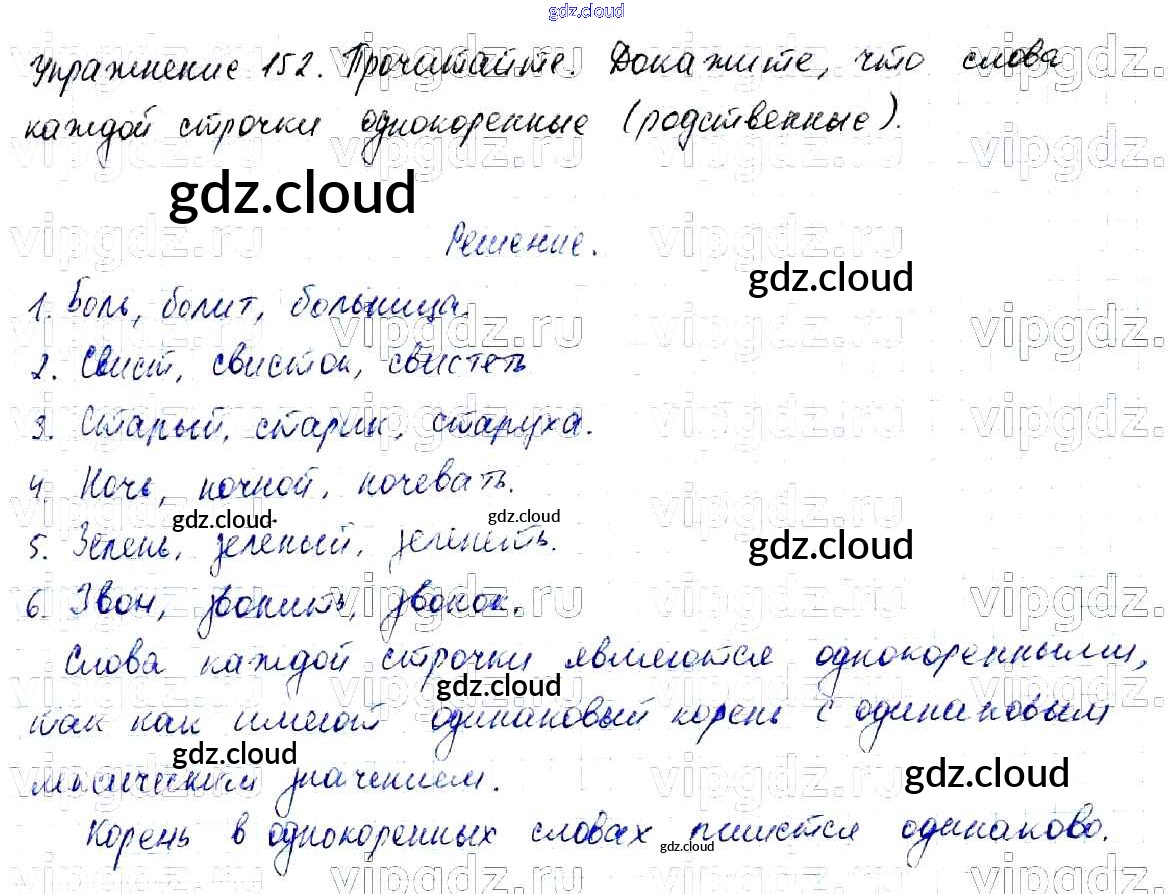 gdz.cloud
Упражнение 152. Прочитайте. Докажите, что слова
каждой строчки однокоренные (родственные).
gdz.cloud
Решение.
gdz.cloud
1. Боль, болит, больница.
2. Свист, свисток, свистеть
3. Старый, старик, старуха.
4. Ночь, ночной, ночевать.
gdz.cloud gdz.cloud
5. Зелень, зелёный, зеленеть.
gdz.cloud
6. Звон, звонить, звонок.
Слова каждой строчки являются однокоренными,
gdz.cloud
так как имеют одинаковый корень с одинаковым
gdz.cloud
лексическим значением.
gdz.cloud
Корень в однокоренных словах пишется одинаково.
gdz.cloud
vipgdz.ru